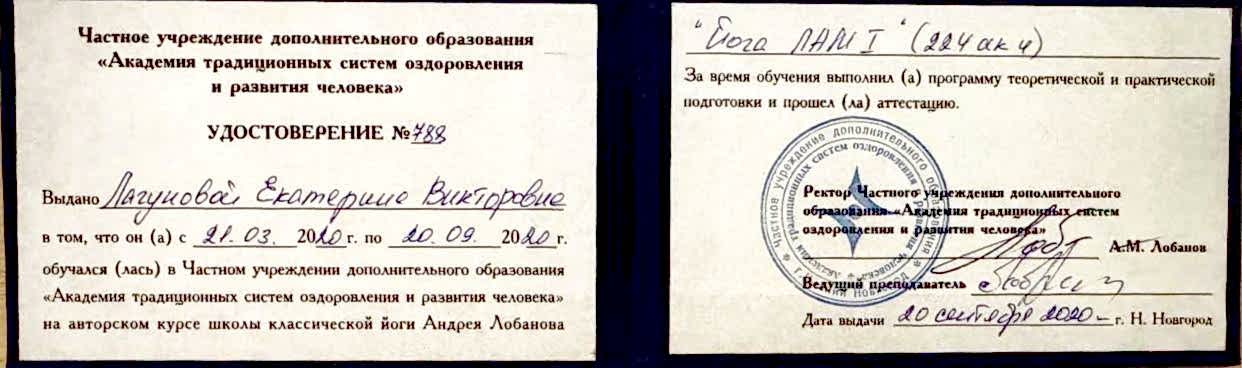 Частное учреждение дополнительного образования
«Академия традиционных систем оздоровления
и развития человека»
УДОСТОВЕРЕНИЕ №788
Выдано Лагуновой Екатерине Викторовне
в том, что он (а) с 21.03. 2020 г. по 20.09. 2020 г.
обучался (лась) в Частном учреждении дополнительного образования
«Академия традиционных систем оздоровления и развития человека»
на авторском курсе школы классической йоги Андрея Лобанова
"Йога ЛАМ I" (224 ак ч)
За время обучения выполнил (а) программу теоретической и практической
подготовки и прошел (ла) аттестацию.
Частное учреждение дополнительного образования
Академия традиционных систем оздоровления и развития человека
г. Нижний Новгород
Ректор Частного учреждения дополнительного
образования «Академия традиционных систем
оздоровления и развития человека»
А.М. Лобанов
Ведущий преподаватель
Дата выдачи 20 сентября 2020 г. Н. Новгород